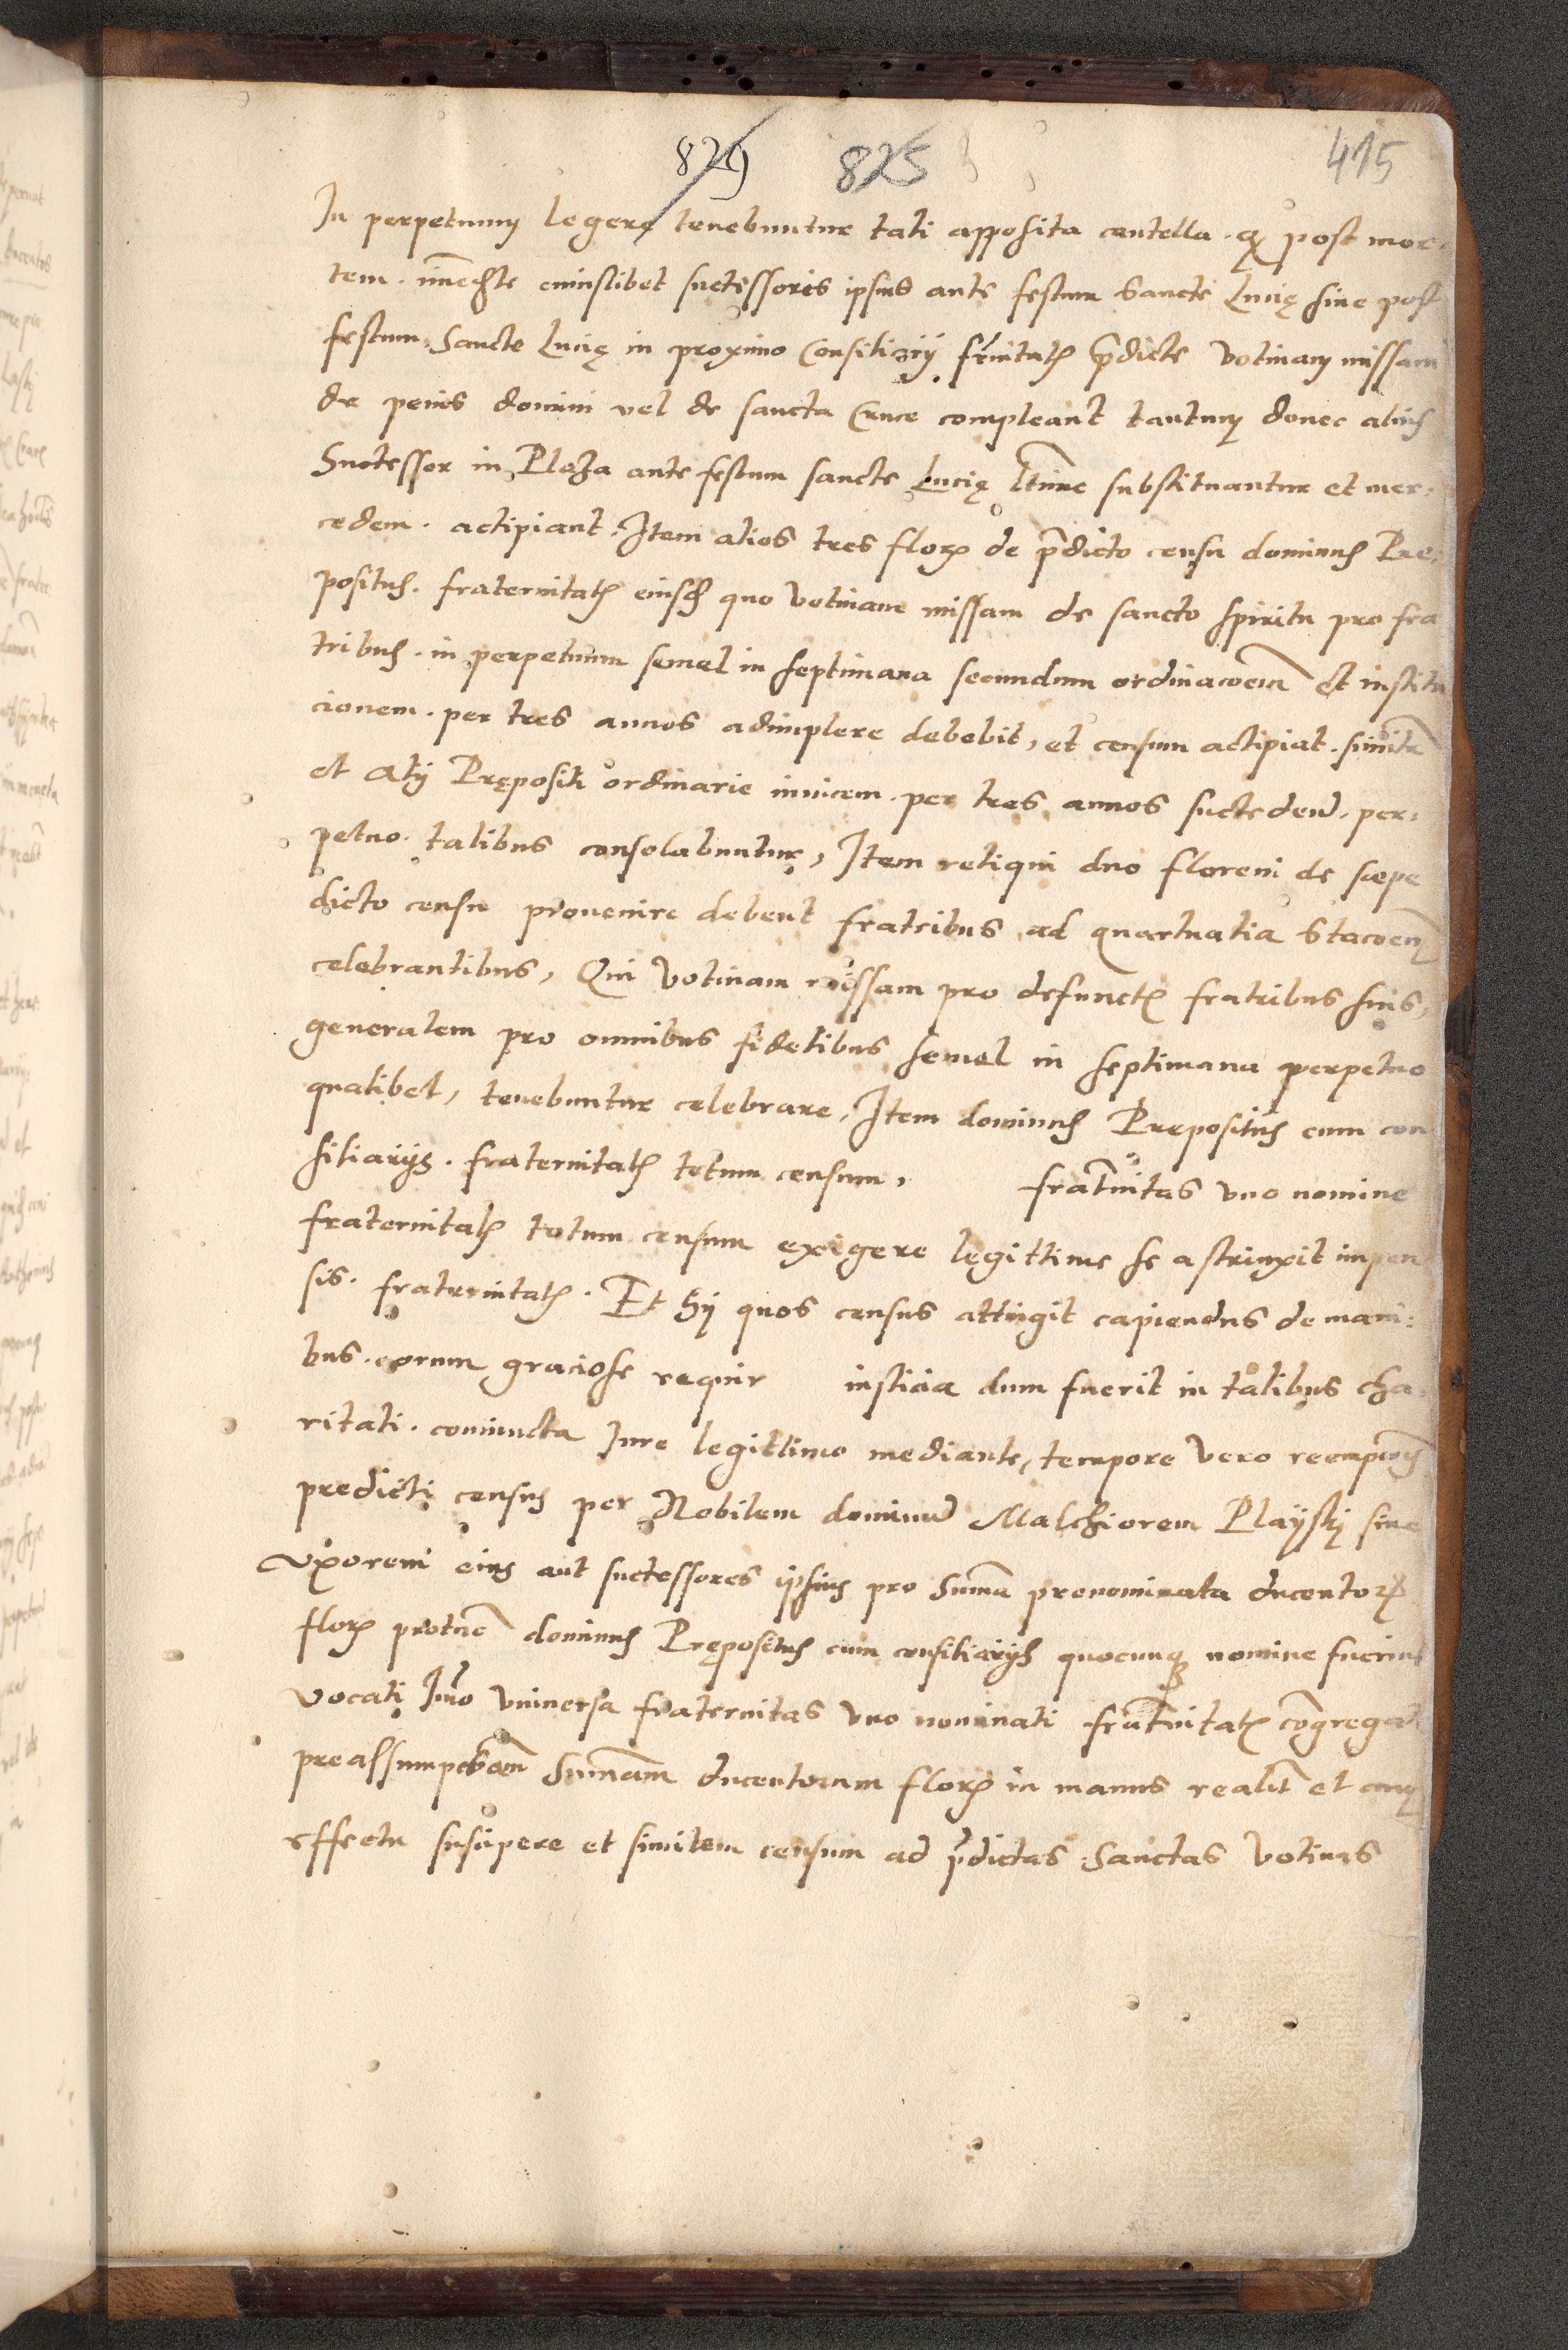 829 825 415
In perpetuum legere tenebuntur tali apposita cautella. q(uod) post mor-
tem. im̅ed(ia)te cuiuslibet successoris ipsius ante festum Sancte Lucię siue post
festum Sancte Lucię in proximo Consiliarij fr̅nitat(is) p̅dicte votiuam missam
de penis domini vel de sancta Cruce compleant tantum donec alius
Successor in Plaza ante festum sancte Lucię l̅time substituantur et mer-
cedem. accipiant. Item alios tres flor(enos) de p̅dicto censu dominus Pre-
positus. fraternitat(is) eiusd(em) quo votiuam missam de sancto spiritu pro fra
tribus. in perpetuum semel in septimana secundum ordinac(i)o(n)em et institu
cionem. per tres annos adimplere debebit, et censum accipiat. simil(i)t(er)
et alij Prępositi ordinarie inuicem. per tres annos succedend(o). per-
petuo. talibus consolabuntur, Item reliqui duo floreni de sæpe
dicto censu prouenire debent fratribus ad quartualia Stac(i)o(n)em
celebrantibus, Qui votiuam missam pro defunct(is) fratribus suis,
generalem pro omnibus fidelibus semel in septimana perpetuo
qualibet, tenebuntur celebrare, Item dominus Prępositus cum con
siliarijs. fraternitat(is) totum censum, frat̅nitas vno nomine
fraternitat(is) totum censum exigere legittime se astrinxit impen
sis. fraternitat(is). Et hij quos census attingit capiendus de mani-
bus. eorum graciose requir iusticia dum fuerit in talibus cha-
ritati. coniuncta Iure legittimo mediante, tempore vero reempc(i)o(n)is
predicti census per Nobilem dominu(m) Malchiorem Playskj siue
vxorem eius aut successores ipsius pro Sum̅a prenominata ducentor(um)
flor(enorum) protu(n)c dominus Prępositus cum consiliarijs quocunq(ue) nomine fuerint
vocati Im̅o vniuersa fraternitas vno nominati frat̅nitat(is) co̅gregati
preassumpc(i)o(n)em Sum̅am ducentorum flor(enorum) in manus realit(er) et cum
effectu suscipere et similem censum ad p̅dictas Sanctas votiuas